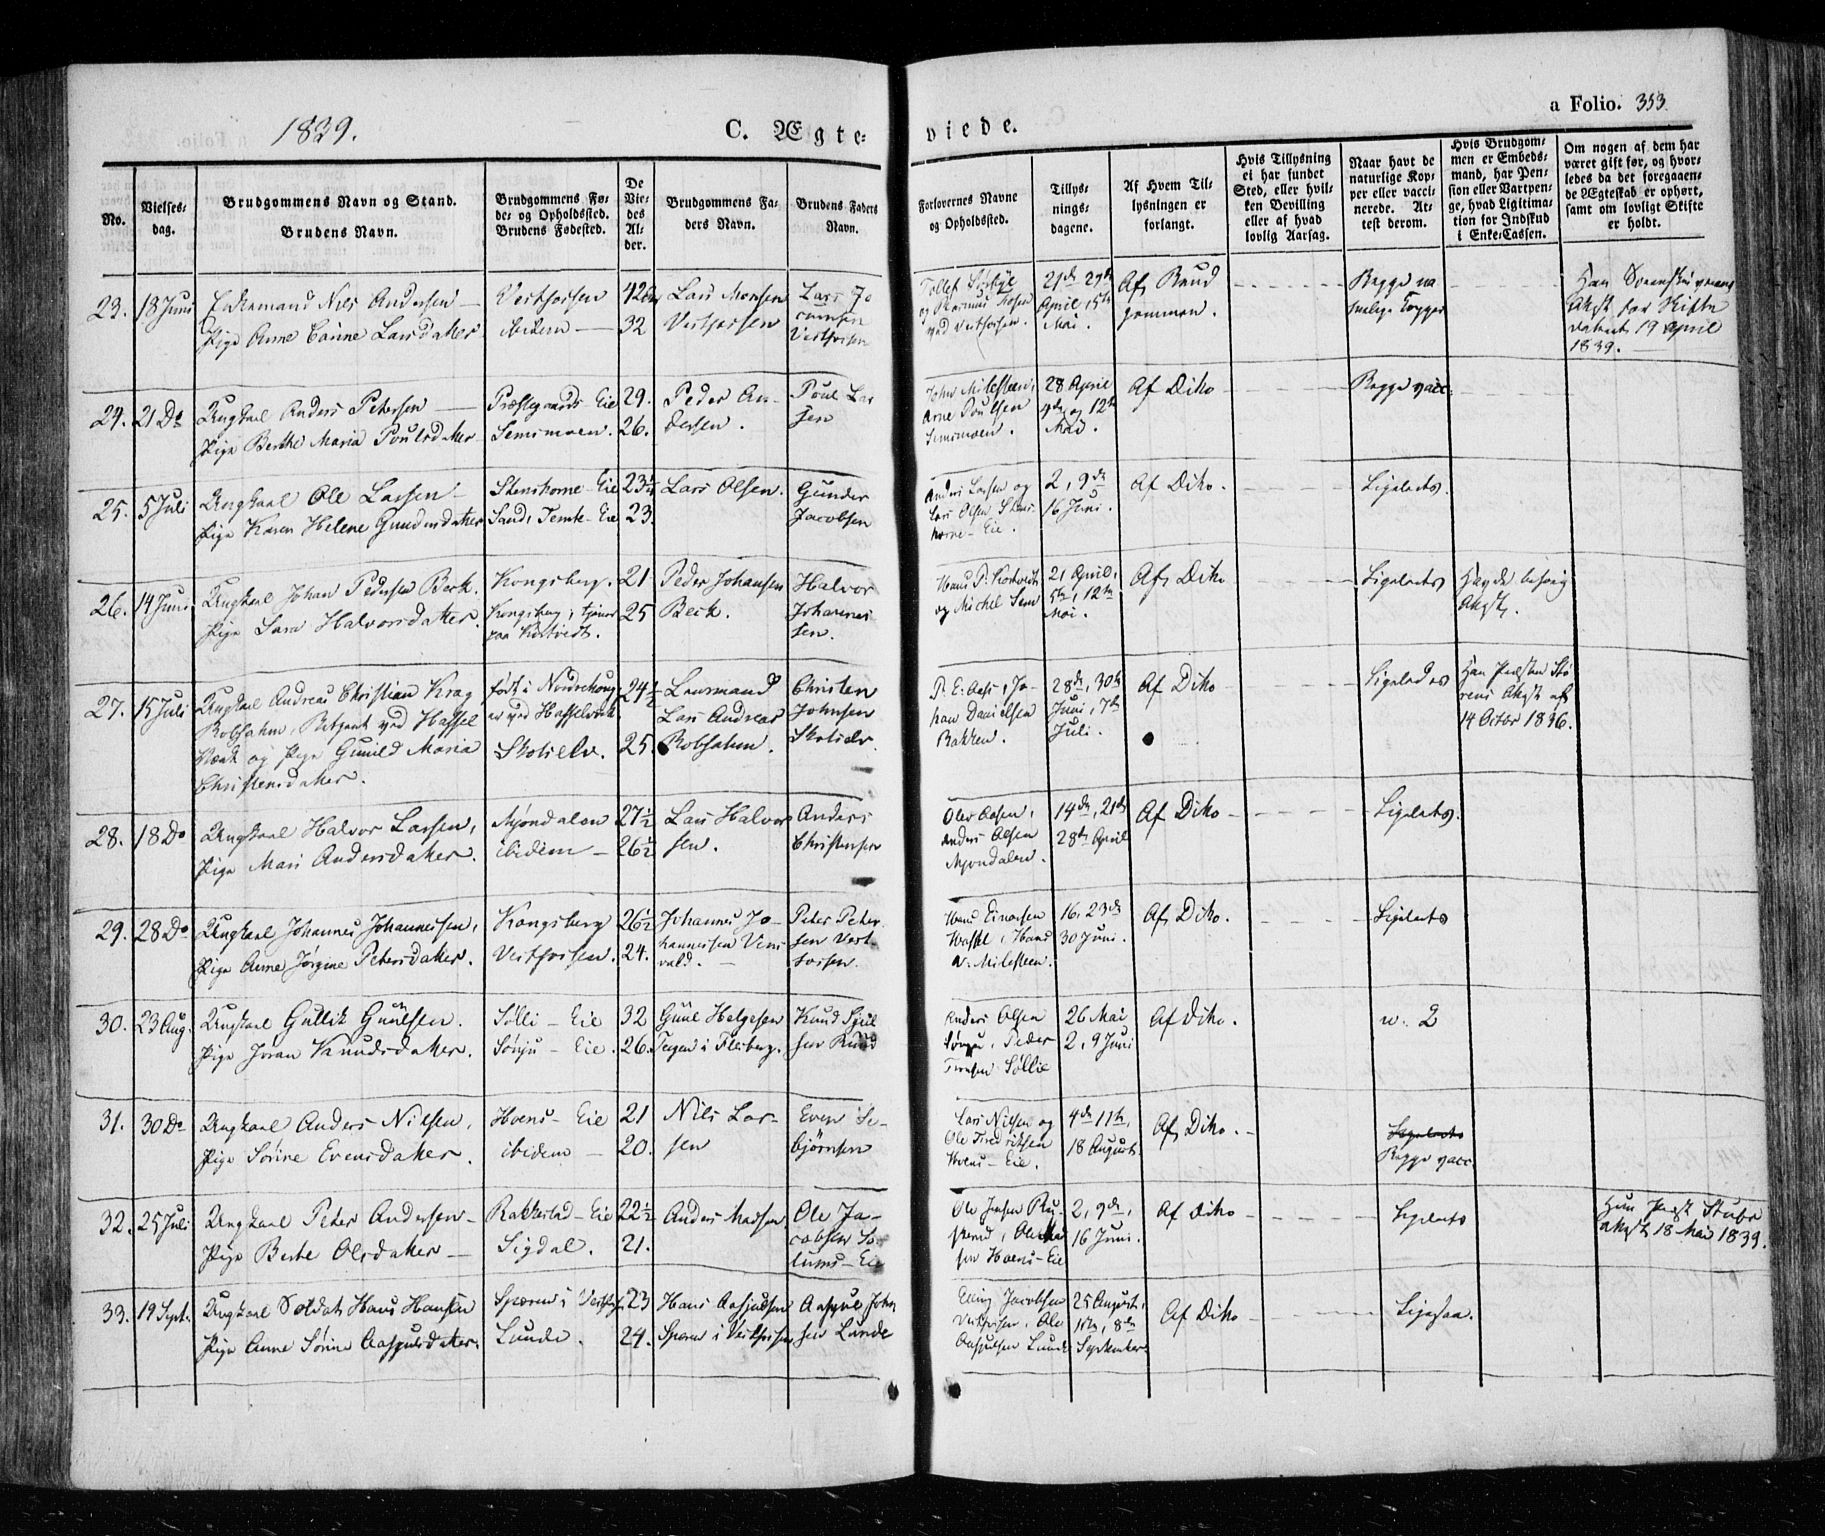 1839.
C. Ægte-
viede.
a Folio. 353
No.
Vielses-
dag.
Brudgommens Navn og Stand.
Brudens Navn.
Brudgommens Fø-
de- og Opholdssted.
Brudens Fødested.
De
Vie-
des
Al-
der.
Brudgommens Fa-
ders Navn.
Brudens Faders
Navn.
Forlovernes Navne
og Opholdssted.
Tillys-
nings-
dagene.
Af Hvem Til-
lysningen er
forlangt.
Hvis Tillysning
ei har fundet
Sted, eller hvil-
ken Bevilling
eller af hvad
lovlig Aarsag.
Naar havt de
naturlige Kop-
per eller vacci-
nerede. At-
test derom.
Hvis Brudgom-
men er Embeds-
mand, har Pen-
sion eller Vartpen-
ge, hvad Ligitima-
tion for Indskud
i Enke-Cassen.
Om nogen af dem har
været gift før, og hvor-
ledes da det foregaaen-
de Ægteskab er ophørt,
samt om lovligt Skifte
er holdt.
23. 18 Juni
Enkemand Nils Andersen
Pige Anne Larsdatter
Vestfossen
ibidem
42
32
Lars Monsen
Vestfossen
Lars Ja
cobsen
Vestfossen
ved Vestfossen.
21de 27de
April 15de
Mai.
Af Brud
gommen.
Begge na
turlige Kopper
Attest for Skifte
dateret 19 April
1839.
24. 21 Do
Ungkarl Anders Petersen
Pige Berthe Maria Poulsdatter
Præstegaards Eie
Semsmoen.
29.
26.
Peder An-
dersen.
Poul Lar
sen
John Milesteen,
Arne Poulsen
Semsmoen.
28 April
og 12te
Mai.
Af Ditto
Begge vacc.
25. 5 Juli
Ungkarl Ole Larsen
Pige Karen Helene Gundersdatter
Stenshorne Eie
Sand, Temte Eie
23½
23.
Lars Olsen.
Gunder
Jacobsen
Anders Larsen og
Lars Olsen Stens
horne Eie.
2, 9de
16 Juni.
Af Ditto.
Ligeledes.
26. 14 Juni
Ungkarl Johan Pedersen Beck.
Pige Sara Halvorsdatter.
Kongsberg.
Kongsberg, tjener
paa Kostvedt.
21
25
Peder Johansen
Beck.
Halvor
Johannes
sen.
Hans P. Kostvedt
og Michel Sem
21 April,
5te, 12te
Mai.
Af Ditto
Ligeledes
Havde behørig
Attest.
27. 15 Juli
Ungkarl Andreas Christian Krag
Robsahm, Betjent ved Hassel
Værk og Pige Gunild Maria
Christensdatter.
født i Nordrehoug
er ved Hasselværk
Skotselv.
24½
25.
Laursmand
Lars Andreas
Robsahm.
Christen
Johnsen
Skotselv.
P. E. Aas, Jo-
han Danielsen
Bakken.
28de, 30te
Juni, 7de
Juli.
Af Ditto
Ligeledes
Han Præsten Stø
rens Attest af
14 Octbr 1836.
28. 18 Do
Ungkarl Halvor Larsen,
Pige Mari Andersdatter.
Mjøndalen
ibidem
27½
26½
Lars Halvor
sen.
Anders
Christensen
Olev Aasen,
Anders Olsen
Mjøndalen.
14de, 21de
28de April
Af Ditto
Ligeledes.
29. 28 Do
Ungkarl Johannes Johannessen,
Pige Anne Jørgine Petersdatter.
Kongsberg
Vestfossen.
26½
24.
Johannes Jo-
hannessen Vens
vald.
Peter Peter
sen Vest-
fossen.
Hans Einarsen
Hassel, Hans
A. Milesteen.
16, 23de
30 Juni.
Af Ditto.
Ligeledes
30. 23 Aug.
Ungkarl Gullik Guulsen.
Pige Joran Knudsdatter.
Sølli Eie
Sønju Eie.
32
26.
Guul Helgesen
Teigen i Flesberg.
Knud Sjul
sen Ruud
Anders Olsen
Sønju, Peder
Søllie
26 Mai
2, 9 Juni
Af Ditto.
n. 2
31. 30 Do
Ungkarl Anders Nilsen,
Pige Sørine Evensdatter.
Hoens Eie
ibidem
21
20.
Nils Lar-
sen
Even Se-
bjørnsen
Lars Nilsen og
Ole Fredriksen
Hoens Eie.
4de 11te,
18 August
Af Ditto.
Ligeledes
Begge vacc.
32. 25 Juli
Ungkarl Peter Andersen
Pige Berte Olsdatter
Rakkestad Eie
Sigdal.
22½
21.
Anders Madsen
Ole Ja-
cobsen So
lums Eie
Ole Jensen Ru-
sen Hoens Eie
2, 9de,
16 Juni.
Af Ditto
Ligeledes
Hun Præst Stubs
Attest 18 Mai 1839.
33. 19 Sept.
Ungkarl Soldat Hans Hansen
Pige Anne Sørine Aaspulsdatter.
Sperren i Vestfos
Lunde.
23
24.
Hans
Sperren i Vestfossen
John
sen Lunde
Elling Jacobsen
Vestfossen, Ole
Lunde
25 August,
1ste, 8de
September
Af Ditto
Ligesaa.